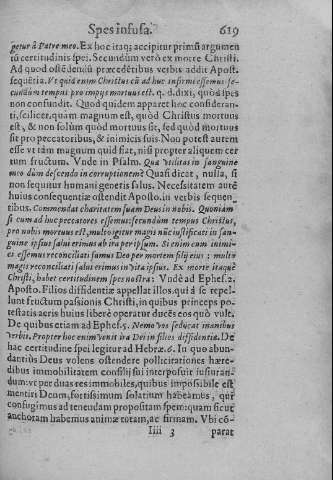 Spes infusa. 619
getur à Patre meo. Ex hoc itaq; accipitur primũ argumen
tũ certitudinis spei. Secundũm verò ex morte Christi.
Ad quod ostẽdendũ præcedẽtibus verbis addit Apost.
sequẽtia. Vt quid enim Christus cũ ad huc infirmi essemus se-
cundùm tempus pro impijs mortuus est. q. d. dixi, quòd spes
non confundit. Quod quidem apparet hoc consideran-
ti, scilicet, quàm magnum est, quòd Christus mortuus
est, & non solùm quòd mortuus sit, sed quòd mortuus
sit pro peccatoribus, & inimicis suis. Non potest autem
esse vt tàm magnum quid fiat, nisi propter aliquem cer
tum fructum. Vnde in Psalm. Qua vtilitas in sanguine
meo dùm descendo in corruptionem? Quasi dicat, nulla, si
non sequitur humani generis salus. Necessitatem autẽ
huius consequentiæ ostendit Aposto. in verbis sequen-
tibus. Commendat charitatem suam Deus in nobis. Quoniam
si cum ad huc peccatores essemus: secundùm tempus Christus,
pro nobis mortuus est, multò igitur magis nũc iustificati in san-
guine ipsius salui erimus ab ira per ipsum. Si enim cum inimi-
ci essemus reconciliati sumus Deo per mortem filij eius; multò
magis reconciliati salui erimus in vita ipsius. Ex morte itaque
Christi, habet certitudinem spes nostra: Vndè ad Ephes. 2.
Aposto. Filios diffidentiæ appellat illos, qui à se repel-
lunt fructum passionis Christi, in quibus princeps po-
testatis aeris huius liberè operatur ducẽs eos quò vult.
De quibus etiam ad Ephes. 5. Nemo vos seducat inanibus
verbis. Propter hoc enim venit ira Dei in filios diffidentiæ. De
hac certitudine spei legitur ad Hebræ. 6. In quo abun-
dantiùs Deus volens ostendere pollicitationes hære-
dibus immobilitatem consilij sui interposuit iusiuran-
dum: vt per duas res immobiles, quibus impossibile est
mentiri Deum, fortissimum solatium habeamus, qui
confugimus ad tenendam propositam spem: quam sicut
anchoram habemus animæ tutam, ac firmam. Vbi cõ-
Iiii 3 parat